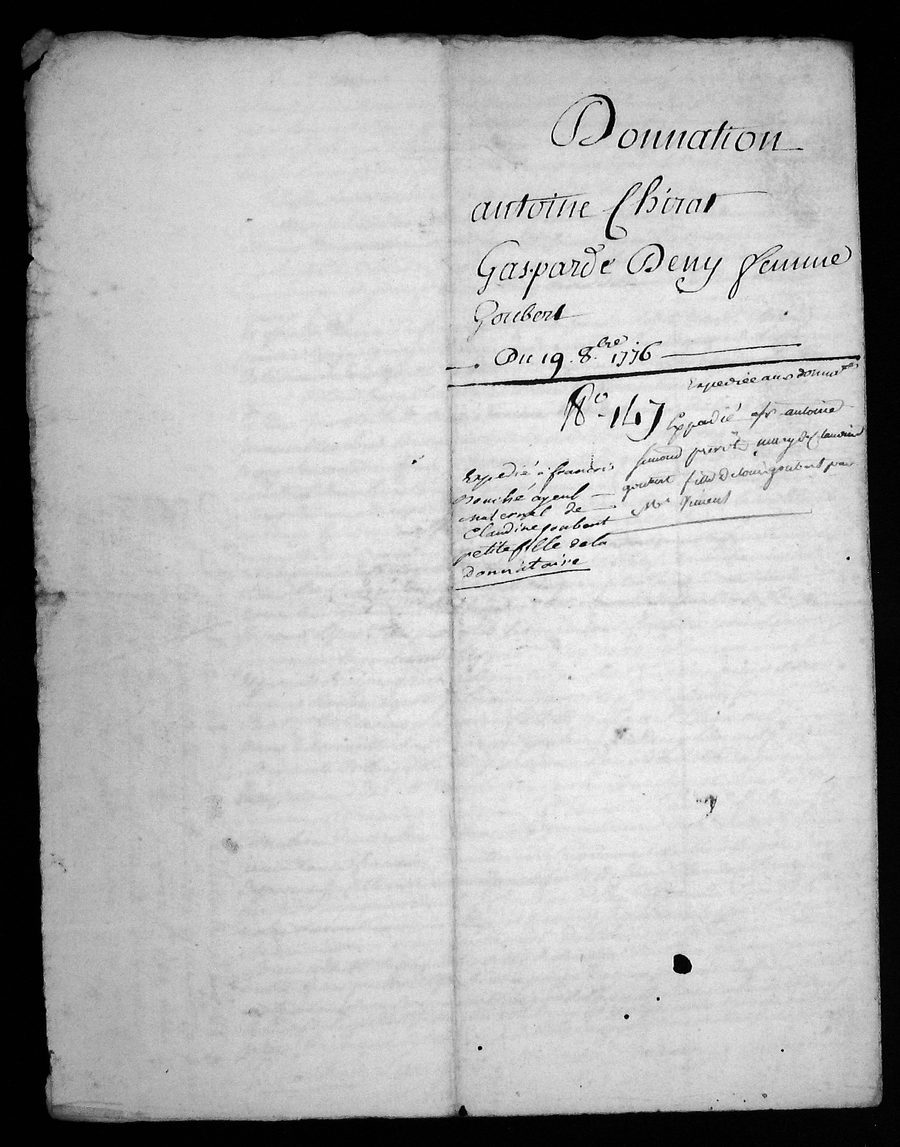 Donnation
antoine Chirat
Gasparde Deny femme
Goubert
Du 19. 8.bre 1776
Expediée aux donnat.res
No. 147
Expedié a antoine
simond prevôt mary de Claudine
goubert fille de Louis goubert par
Me
Expedié à francois
Bouché ayeul
maternel de
Claudine goubert
petite fille de la
donnataire